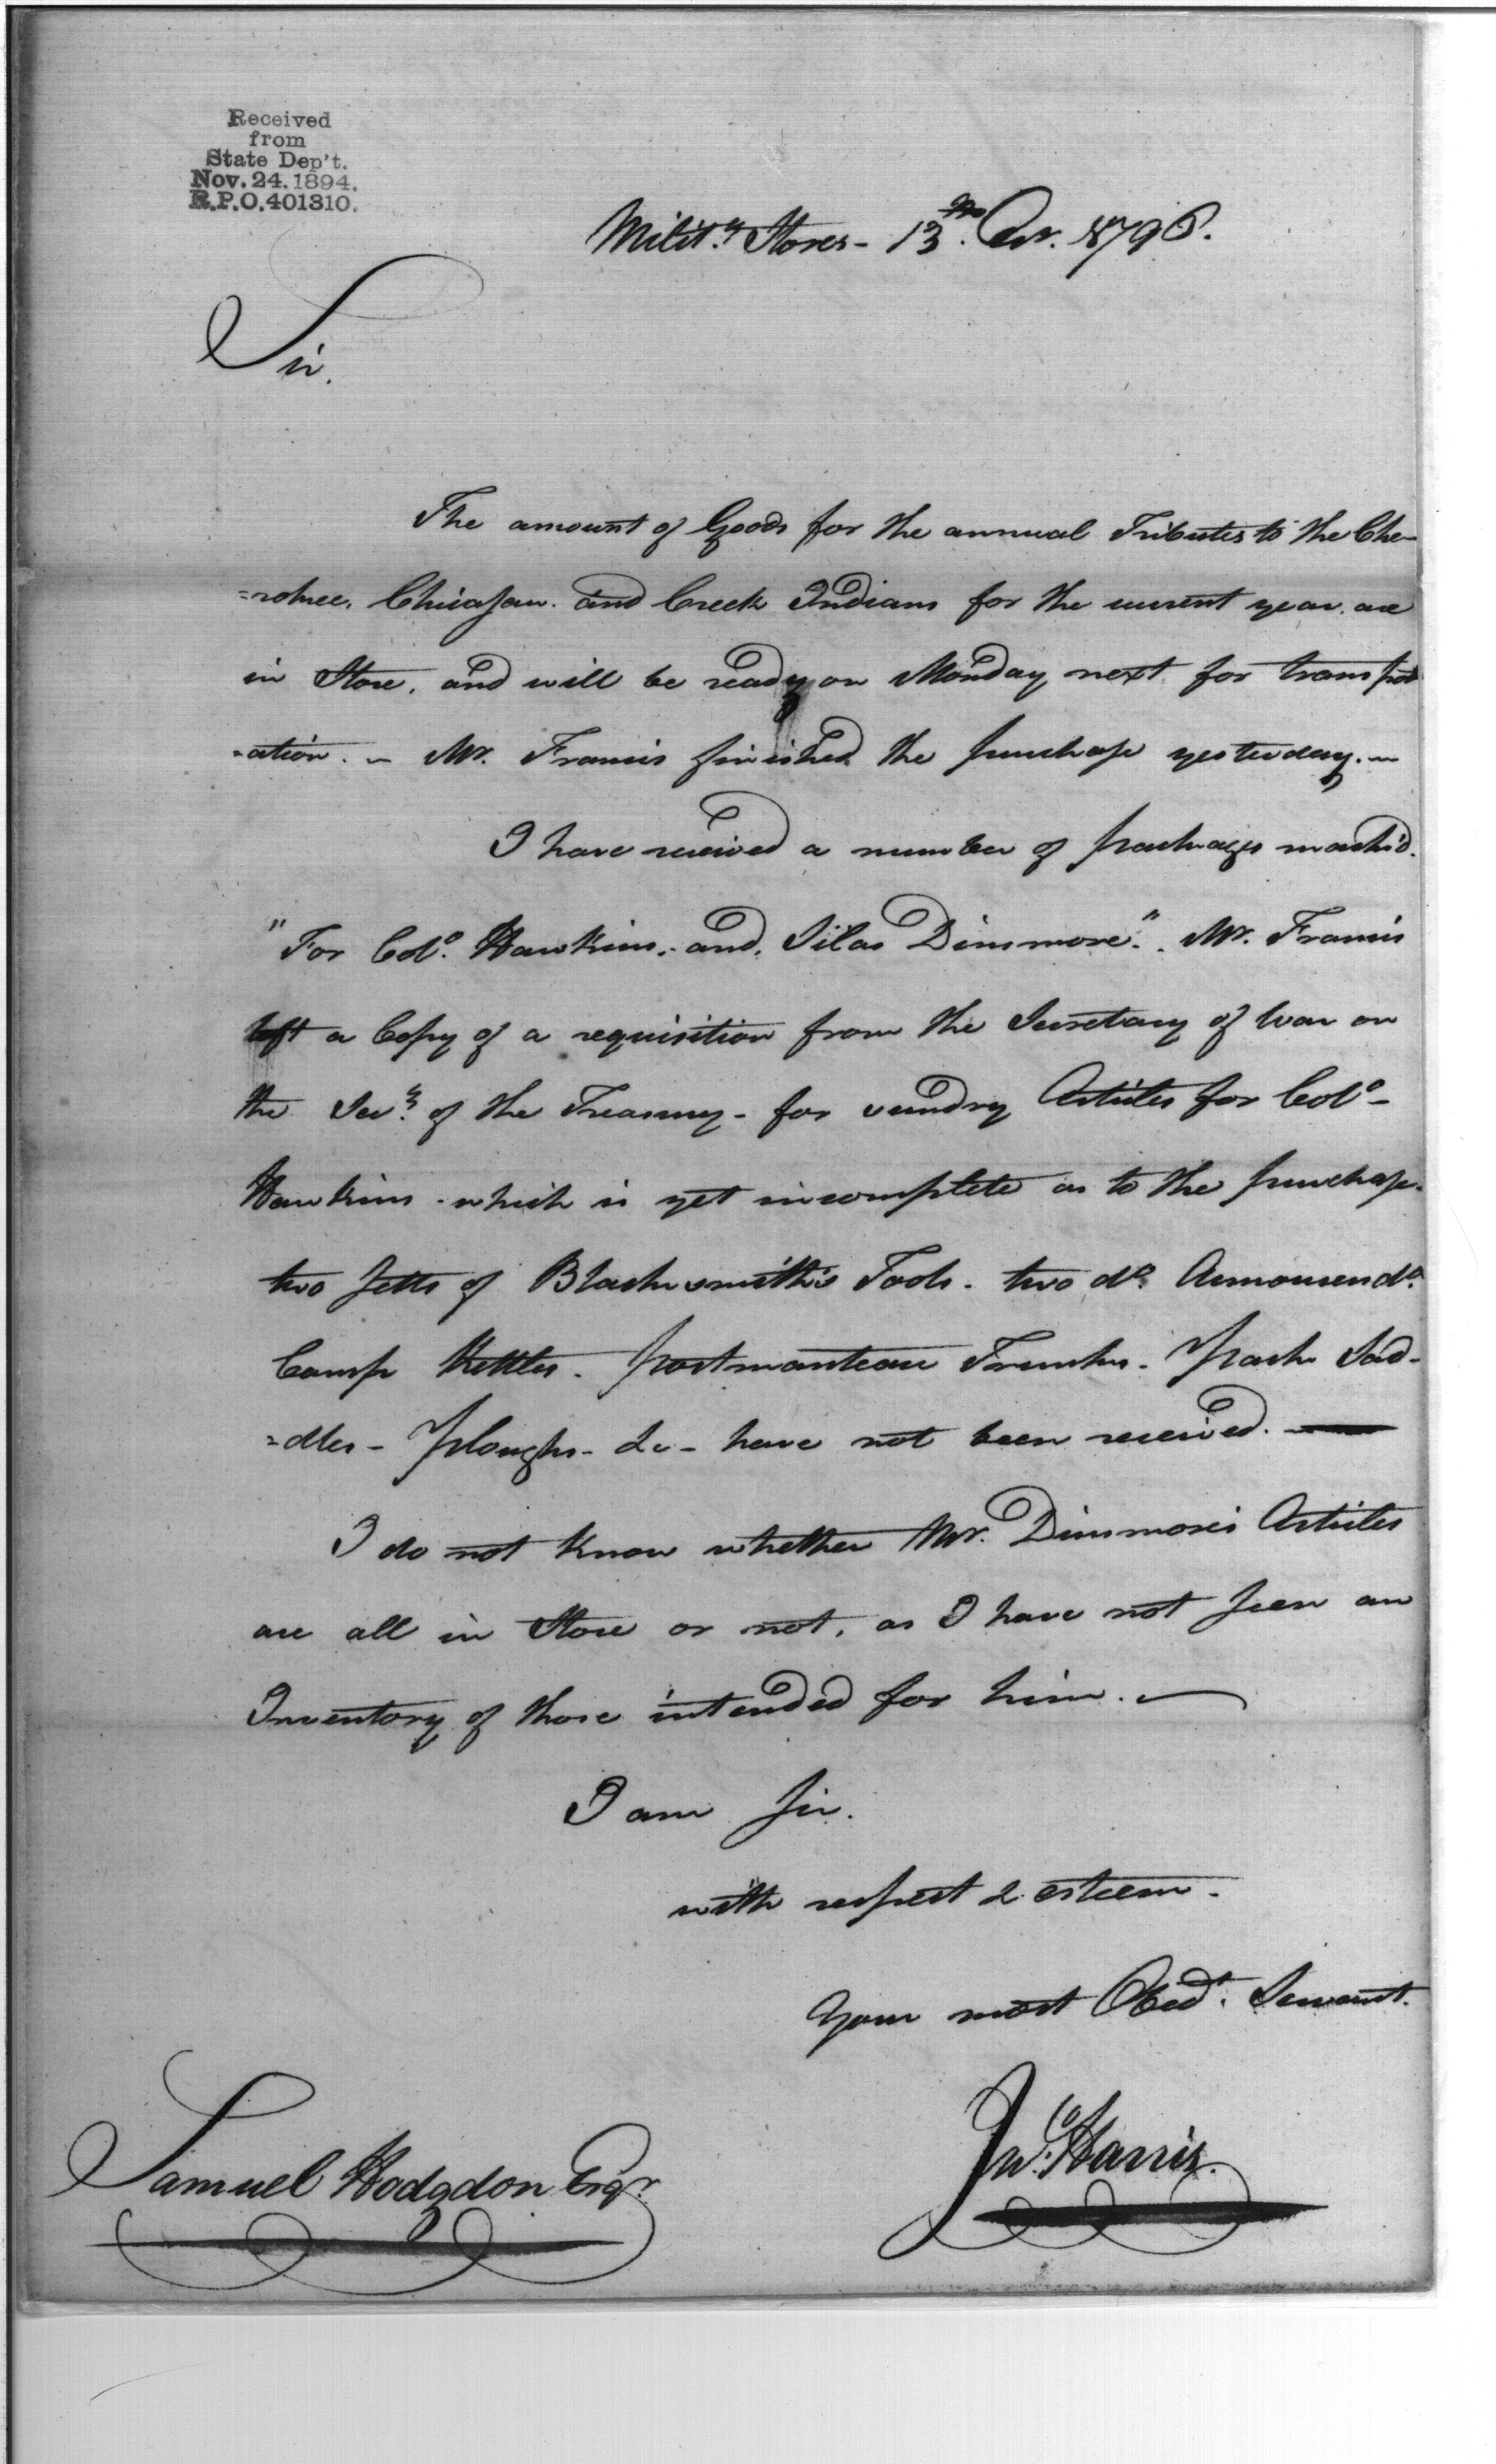 Received
from
State Dep't.
Nov. 24. 1894.
R.P.O. 401310.
Milit.y Stores - 13th. Octr. 1796.
Sir.
The amount of Goods for the annual Tributes to the Che-
=rokee, Chicasaw. and Creek Indians for the current year. are
in Store, and will be ready on Monday next for transport
=ation. ~ Mr. Francis finished the purchase yesterday. ~
I have received a number of packages mark'd.
"For Colo. Hawkins, and, Silas Dinsmore". Mr. Francis
left a Copy of a requisition from the Secretary of War on
the Secy. of the Treasury - for sundry Articles for Colo -
Hawkins - which is yet incomplete as to the purchase.
two setts of Blacksmith's Tools - two do. Armourers do.
Camp Kettles - portmanteau Trunks - pack Sad-
=dles - ploughs - &c - have not been received. —
I do not know whether Mr. Dinsmore's Articles
are all in Store or not, as I have not seen an
Inventory of those intended for him. —
I am Sir.
with respect & esteem -
Your most Obedt. Servant.
Jno. Harris.
Samuel Hodgdon Esqr.